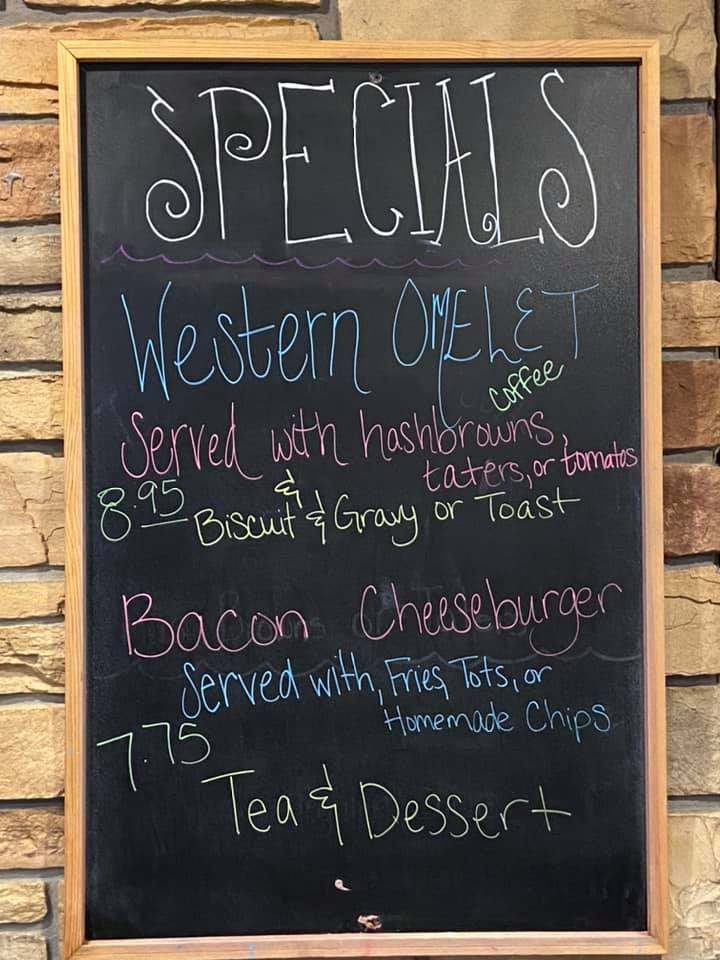 SPECIALS
Western OMELET
coffee
Served with hashbrowns,
taters, or tomatos
&
8.95 Biscuit & Gravy or Toast
Bacon Cheeseburger
Served with, Fries, Tots, or
Homemade Chips
7.75
Tea & Dessert